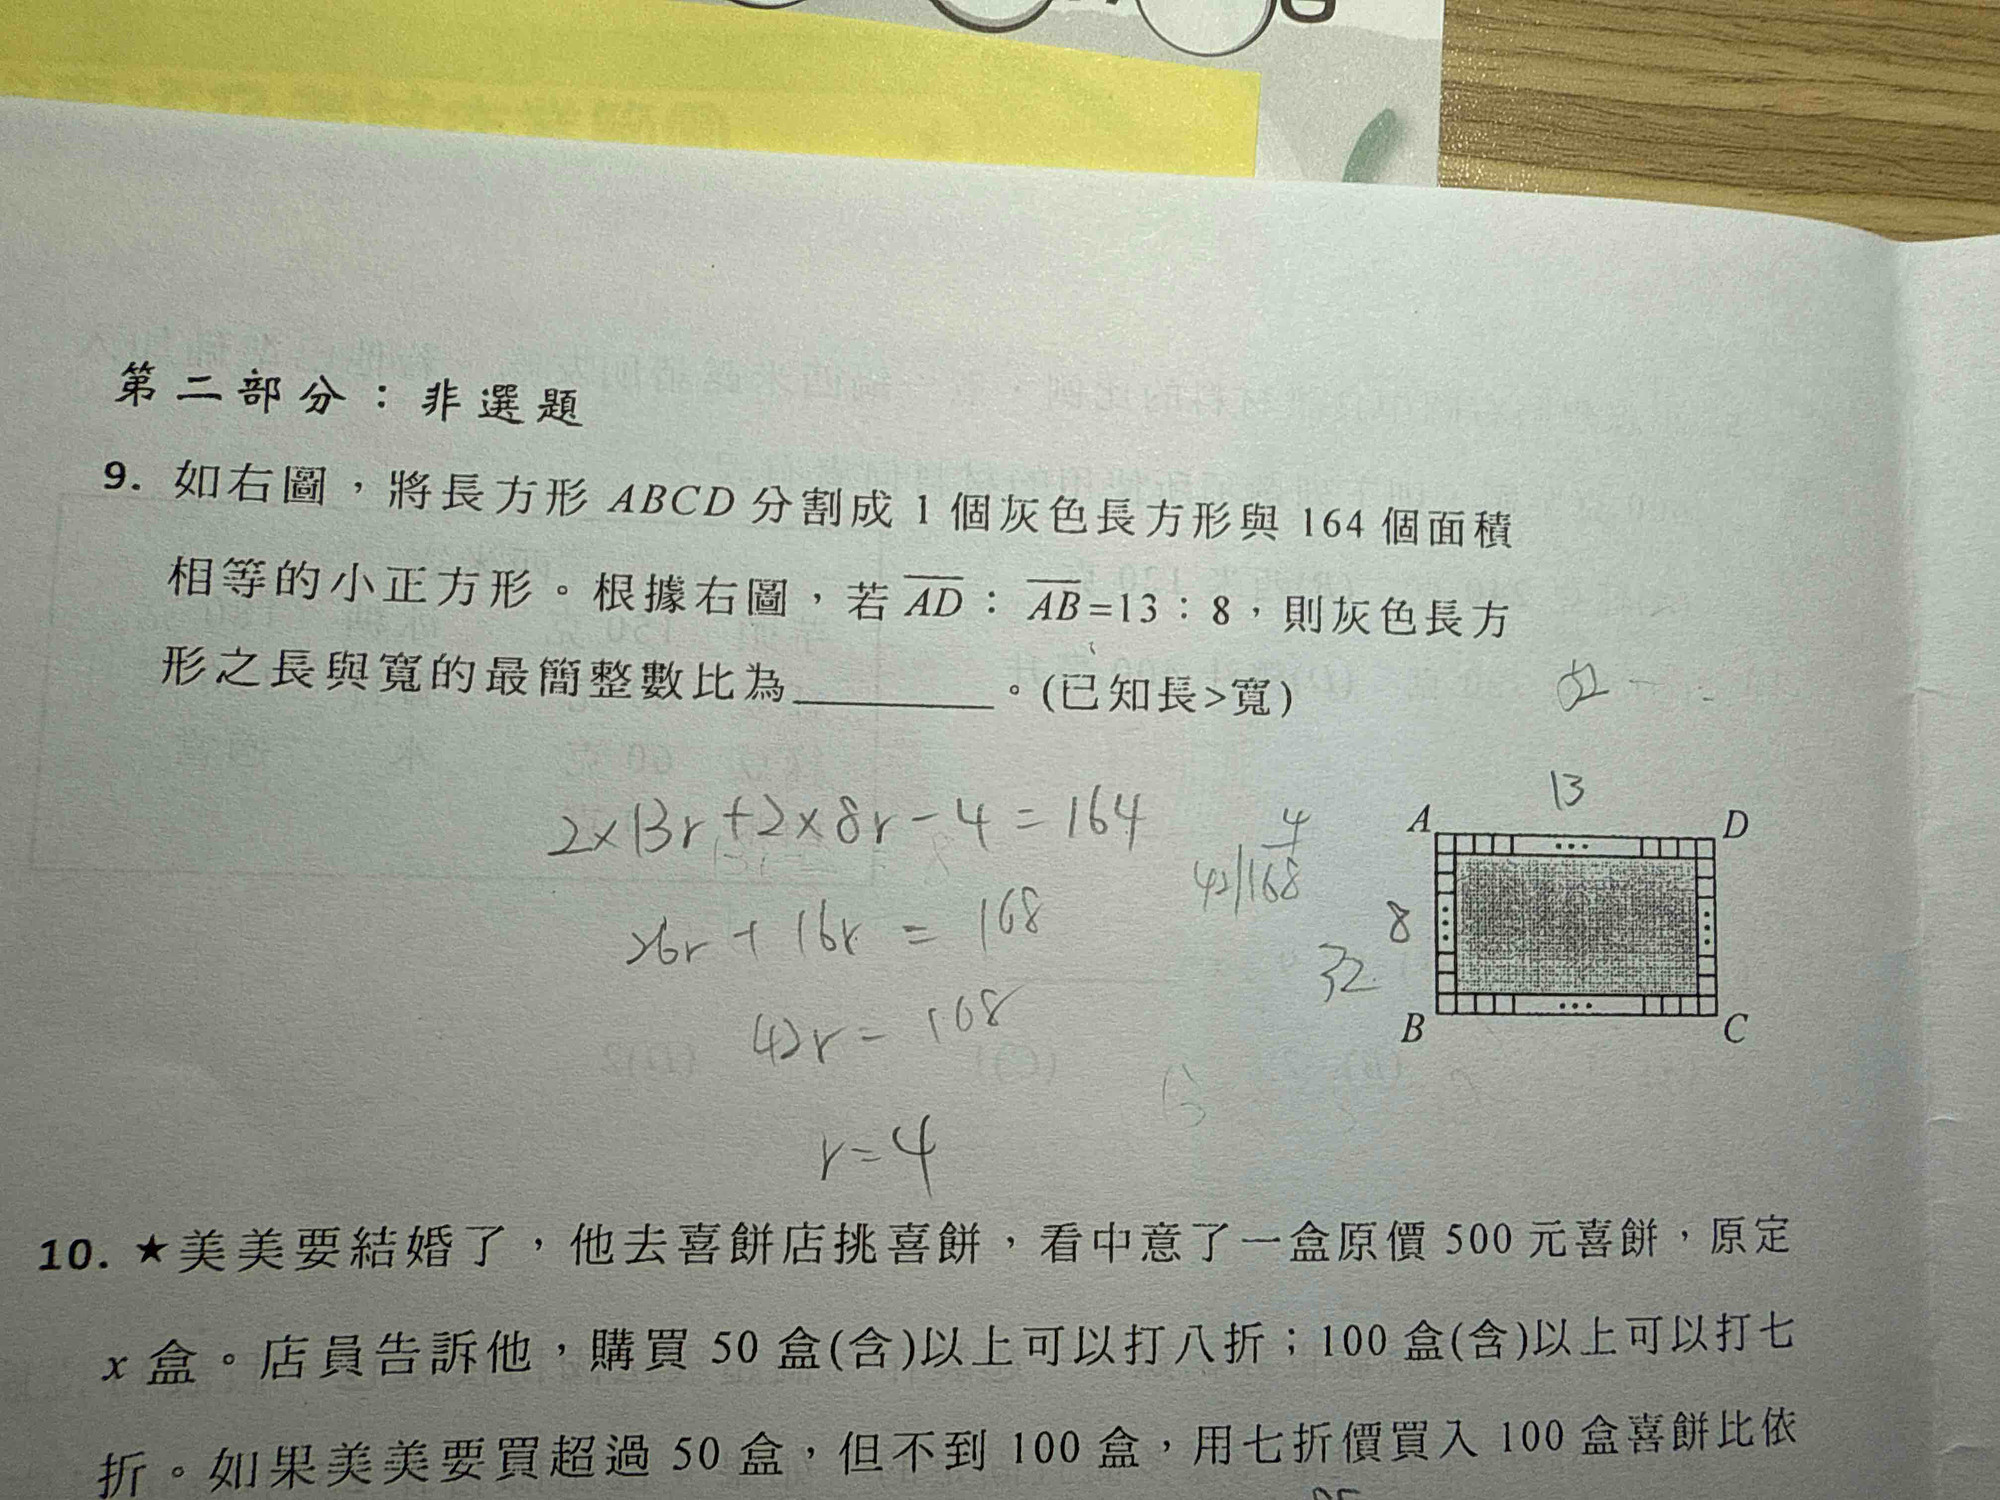 第二部分：非選題
9. 如右圖，將長方形 ABCD 分割成 1 個灰色長方形與 164 個面積
相等的小正方形。根據右圖，若 AD：AB=13：8，則灰色長方
形之長與寬的最簡整數比為________。(已知長>寬)
13
2×13r+2×8r-4=164
A D
4
42/168
26r+16r=168
8
32
42r=168
B C
r=4
10. ★美美要結婚了，他去喜餅店挑喜餅，看中意了一盒原價 500 元喜餅，原定
x 盒。店員告訴他，購買 50 盒(含)以上可以打八折；100 盒(含)以上可以打七
折。如果美美要買超過 50 盒，但不到 100 盒，用七折價買入 100 盒喜餅比依